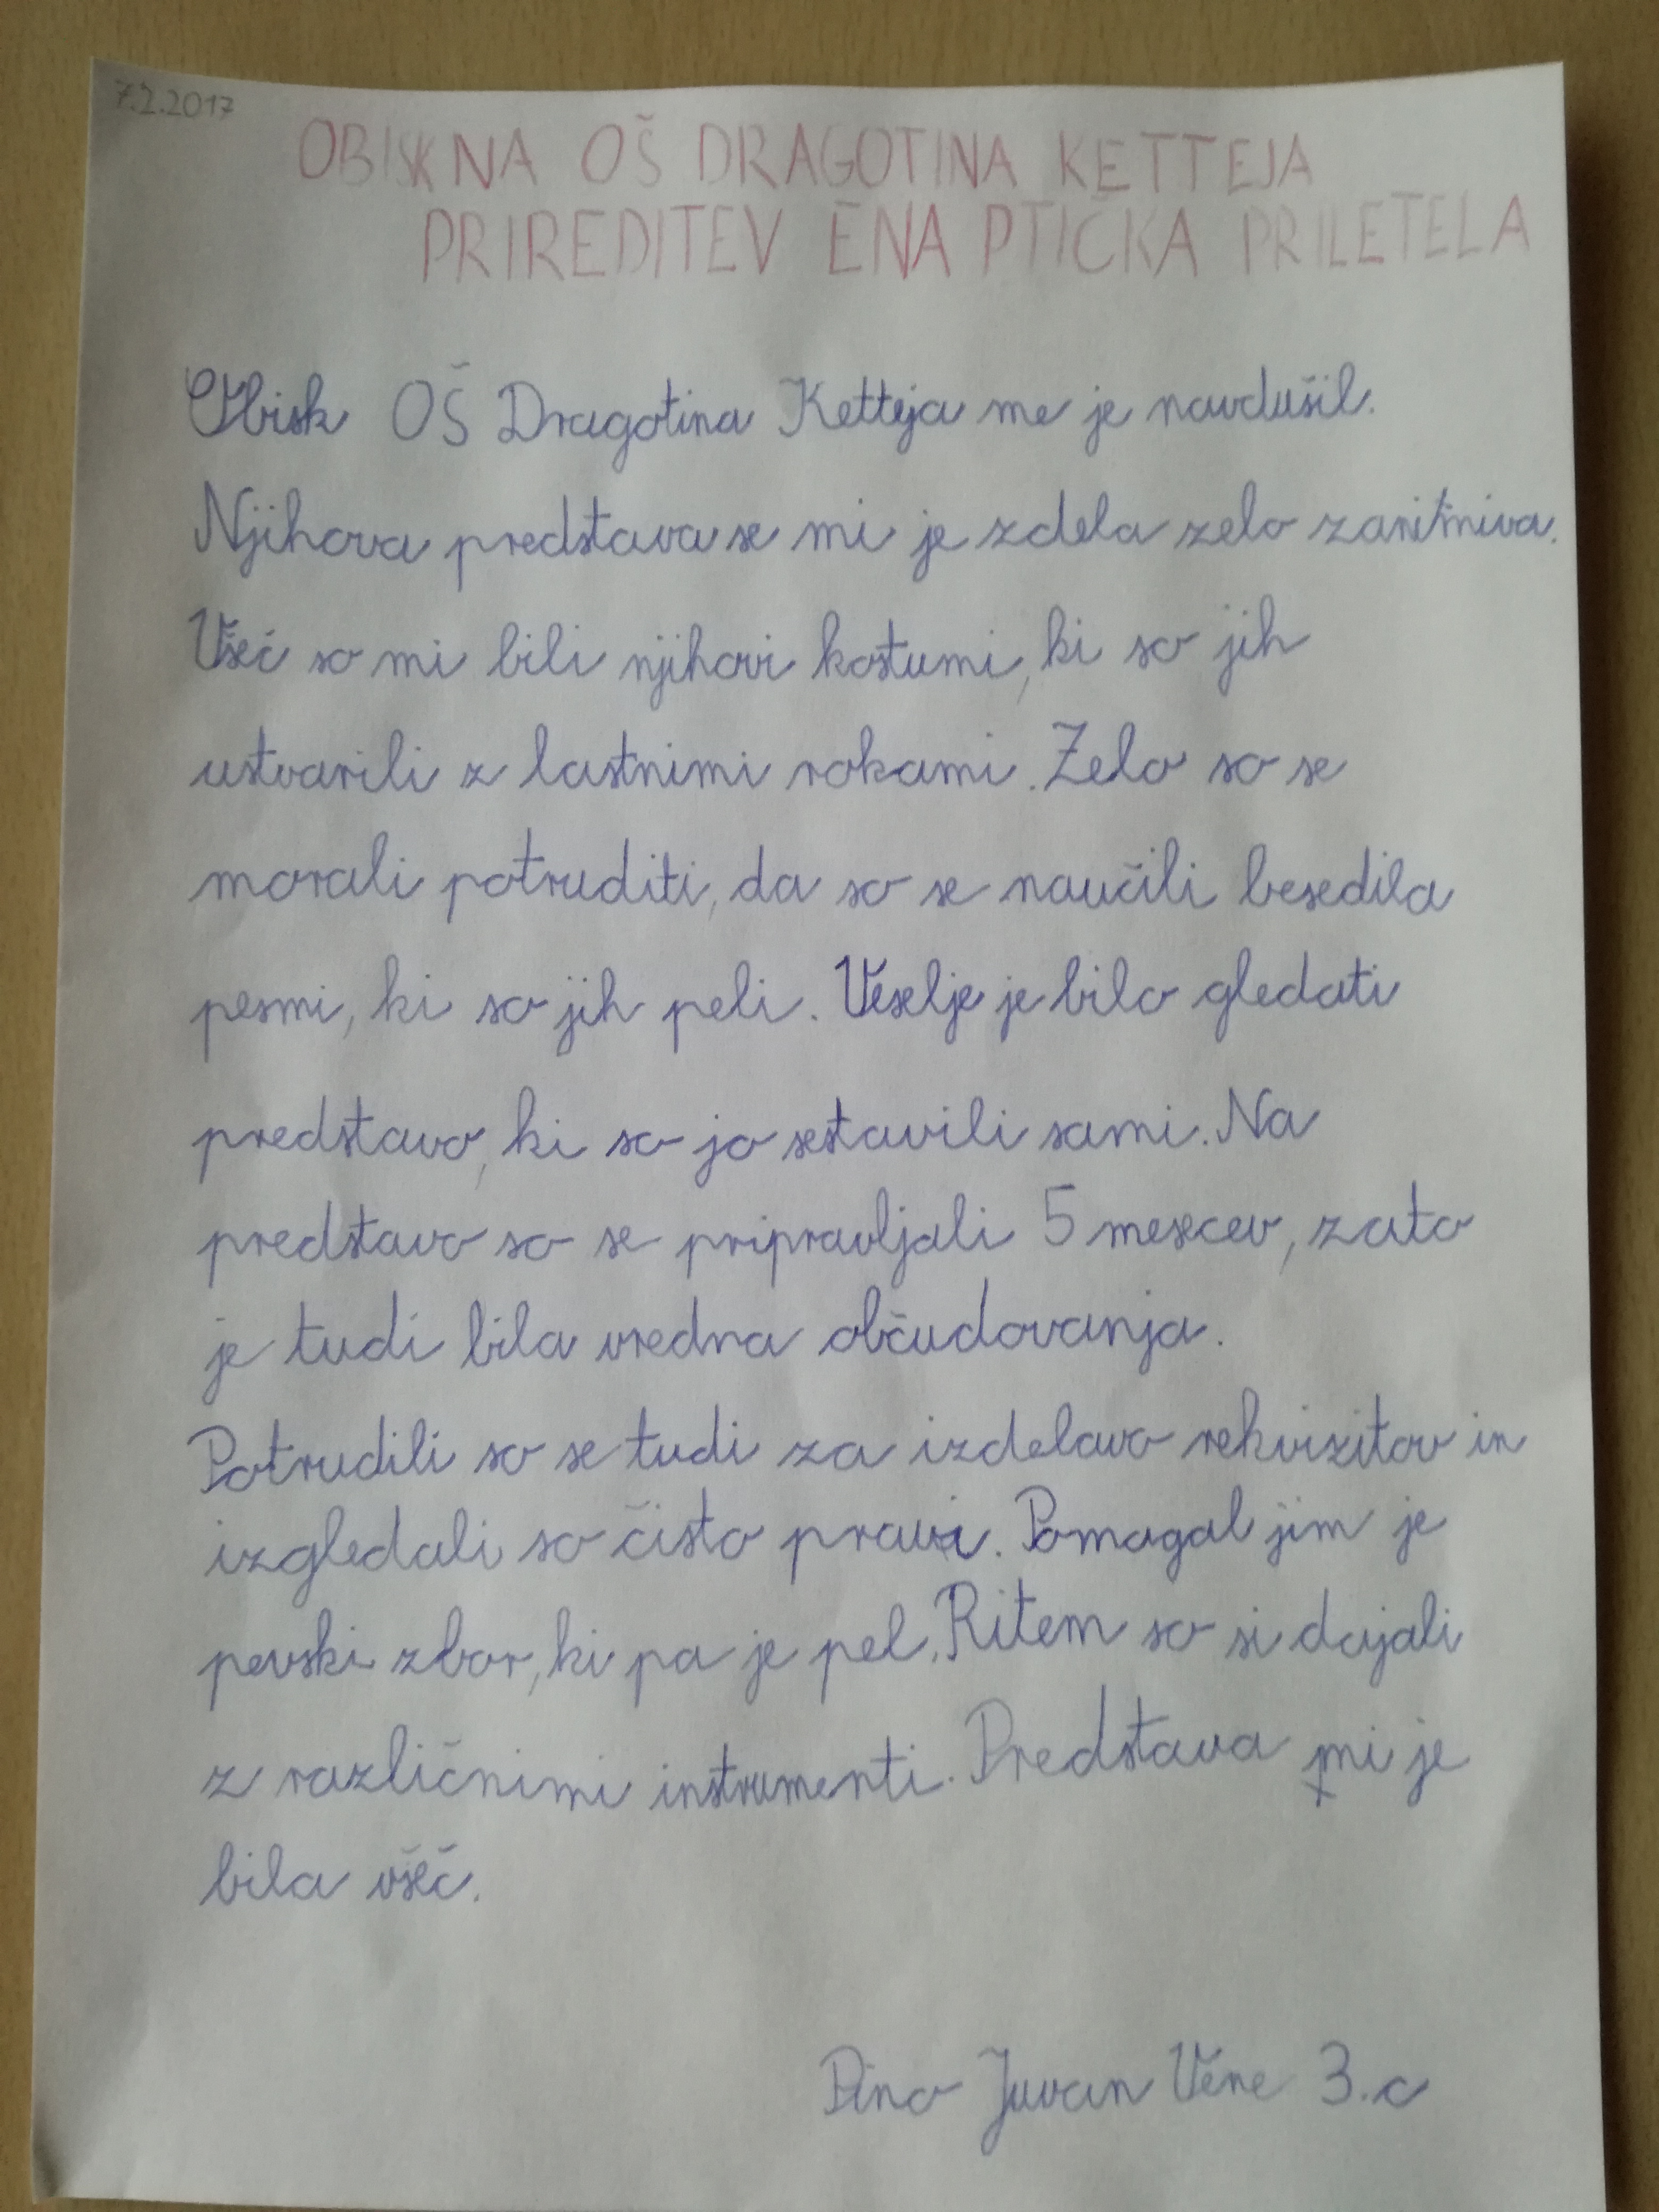 7.2.2017
OBISK NA OŠ DRAGOTINA KETTEJA
PRIREDITEV ENA PTIČKA PRILETELA
Obisk OŠ Dragotina Ketteja me je navdušil.
Njihova predstava se mi je zdela zelo zanimiva.
Všeč so mi bili njihovi kostumi, ki so jih
ustvarili z lastnimi rokami. Zelo so se
morali potruditi, da so se naučili besedila
pesmi, ki so jih peli. Veselje je bilo gledati
predstavo, ki so jo sestavili sami. Na
predstavo so se pripravljali 5 mesecev, zato
je tudi bila vredna občudovanja.
Potrudili so se tudi za izdelavo rekvizitov in
izgledali so čisto pravi. Pomagal jim je
pevski zbor, ki pa je pel. Ritem so si dajali
z različnimi instrumenti. Predstava mi je
bila všeč.
Juvan Vene 3.c